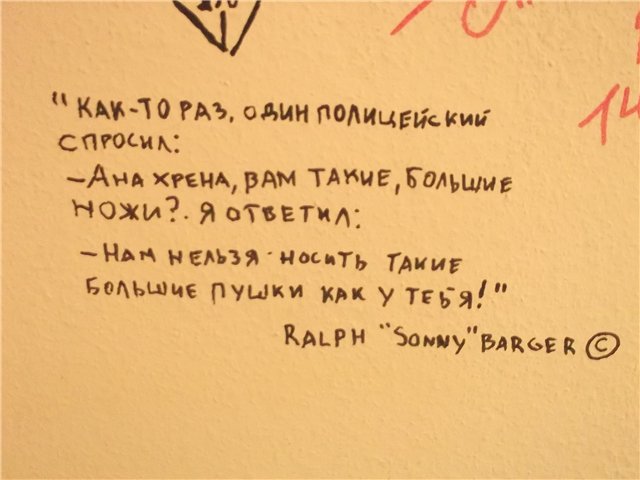 "КАК-ТО РАЗ, ОДИН ПОЛИЦЕЙСКИЙ
СПРОСИЛ:
-АНА ХРЕНА, ВАМ ТАКИЕ, БОЛЬШИЕ
НОЖИ?. Я ОТВЕТИЛ:
-НАМ НЕЛЬЗЯ НОСИТЬ ТАКИЕ
БОЛЬШИЕ ПУШКИ КАК У ТЕБЯ!"
RALPH "SONNY" BARGER ©
14